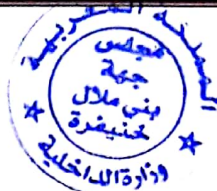 المملكة المغربية
مجلس
جهة
بني ملال
خنيفرة
وزارة الداخلية